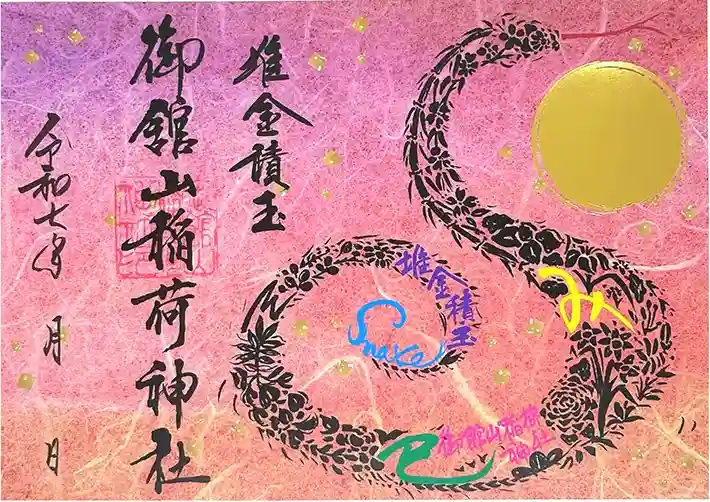 堆金積玉
御舘山稲荷神社
令和七年 月 日
堆金積玉
Snake
み
巳
御舘山稲荷神社